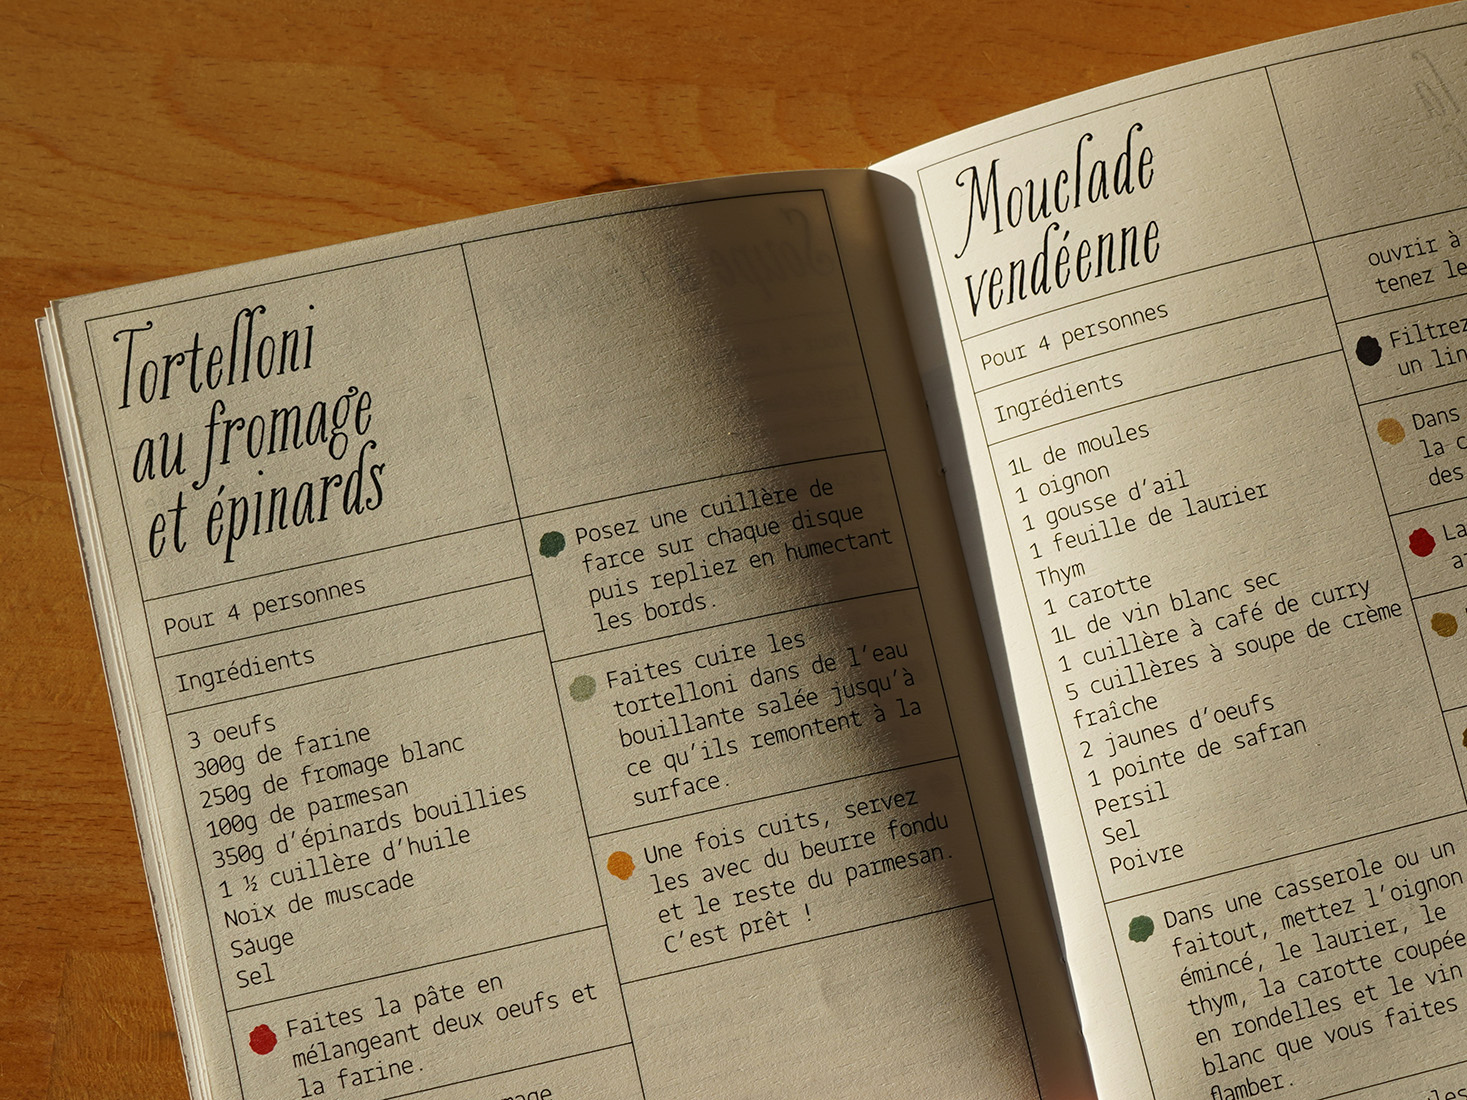 Tortelloni
au fromage
et épinards
Pour 4 personnes
Ingrédients
3 oeufs
300g de farine
250g de fromage blanc
100g de parmesan
350g d’épinards bouillies
1 ½ cuillère d’huile
Noix de muscade
Sauge
Sel
Faites la pâte en
mélangeant deux oeufs et
la farine.
Posez une cuillère de
farce sur chaque disque
puis repliez en humectant
les bords.
Faites cuire les
tortelloni dans de l’eau
bouillante salée jusqu’à
ce qu’ils remontent à la
surface.
Une fois cuits, servez
les avec du beurre fondu
et le reste du parmesan.
C’est prêt !
Mouclade
vendéenne
Pour 4 personnes
Ingrédients
1L de moules
1 oignon
1 gousse d’ail
1 feuille de laurier
Thym
1 carotte
1L de vin blanc sec
1 cuillère à café de curry
5 cuillères à soupe de crème
fraîche
2 jaunes d’oeufs
1 pointe de safran
Persil
Sel
Poivre
Dans une casserole ou un
faitout, mettez l’oignon
émincé, le laurier, le
thym, la carotte coupée
en rondelles et le vin
blanc que vous faites
flamber.
ouvrir à
tenez le
Filtrez
un lin
Dans
la c
des
La